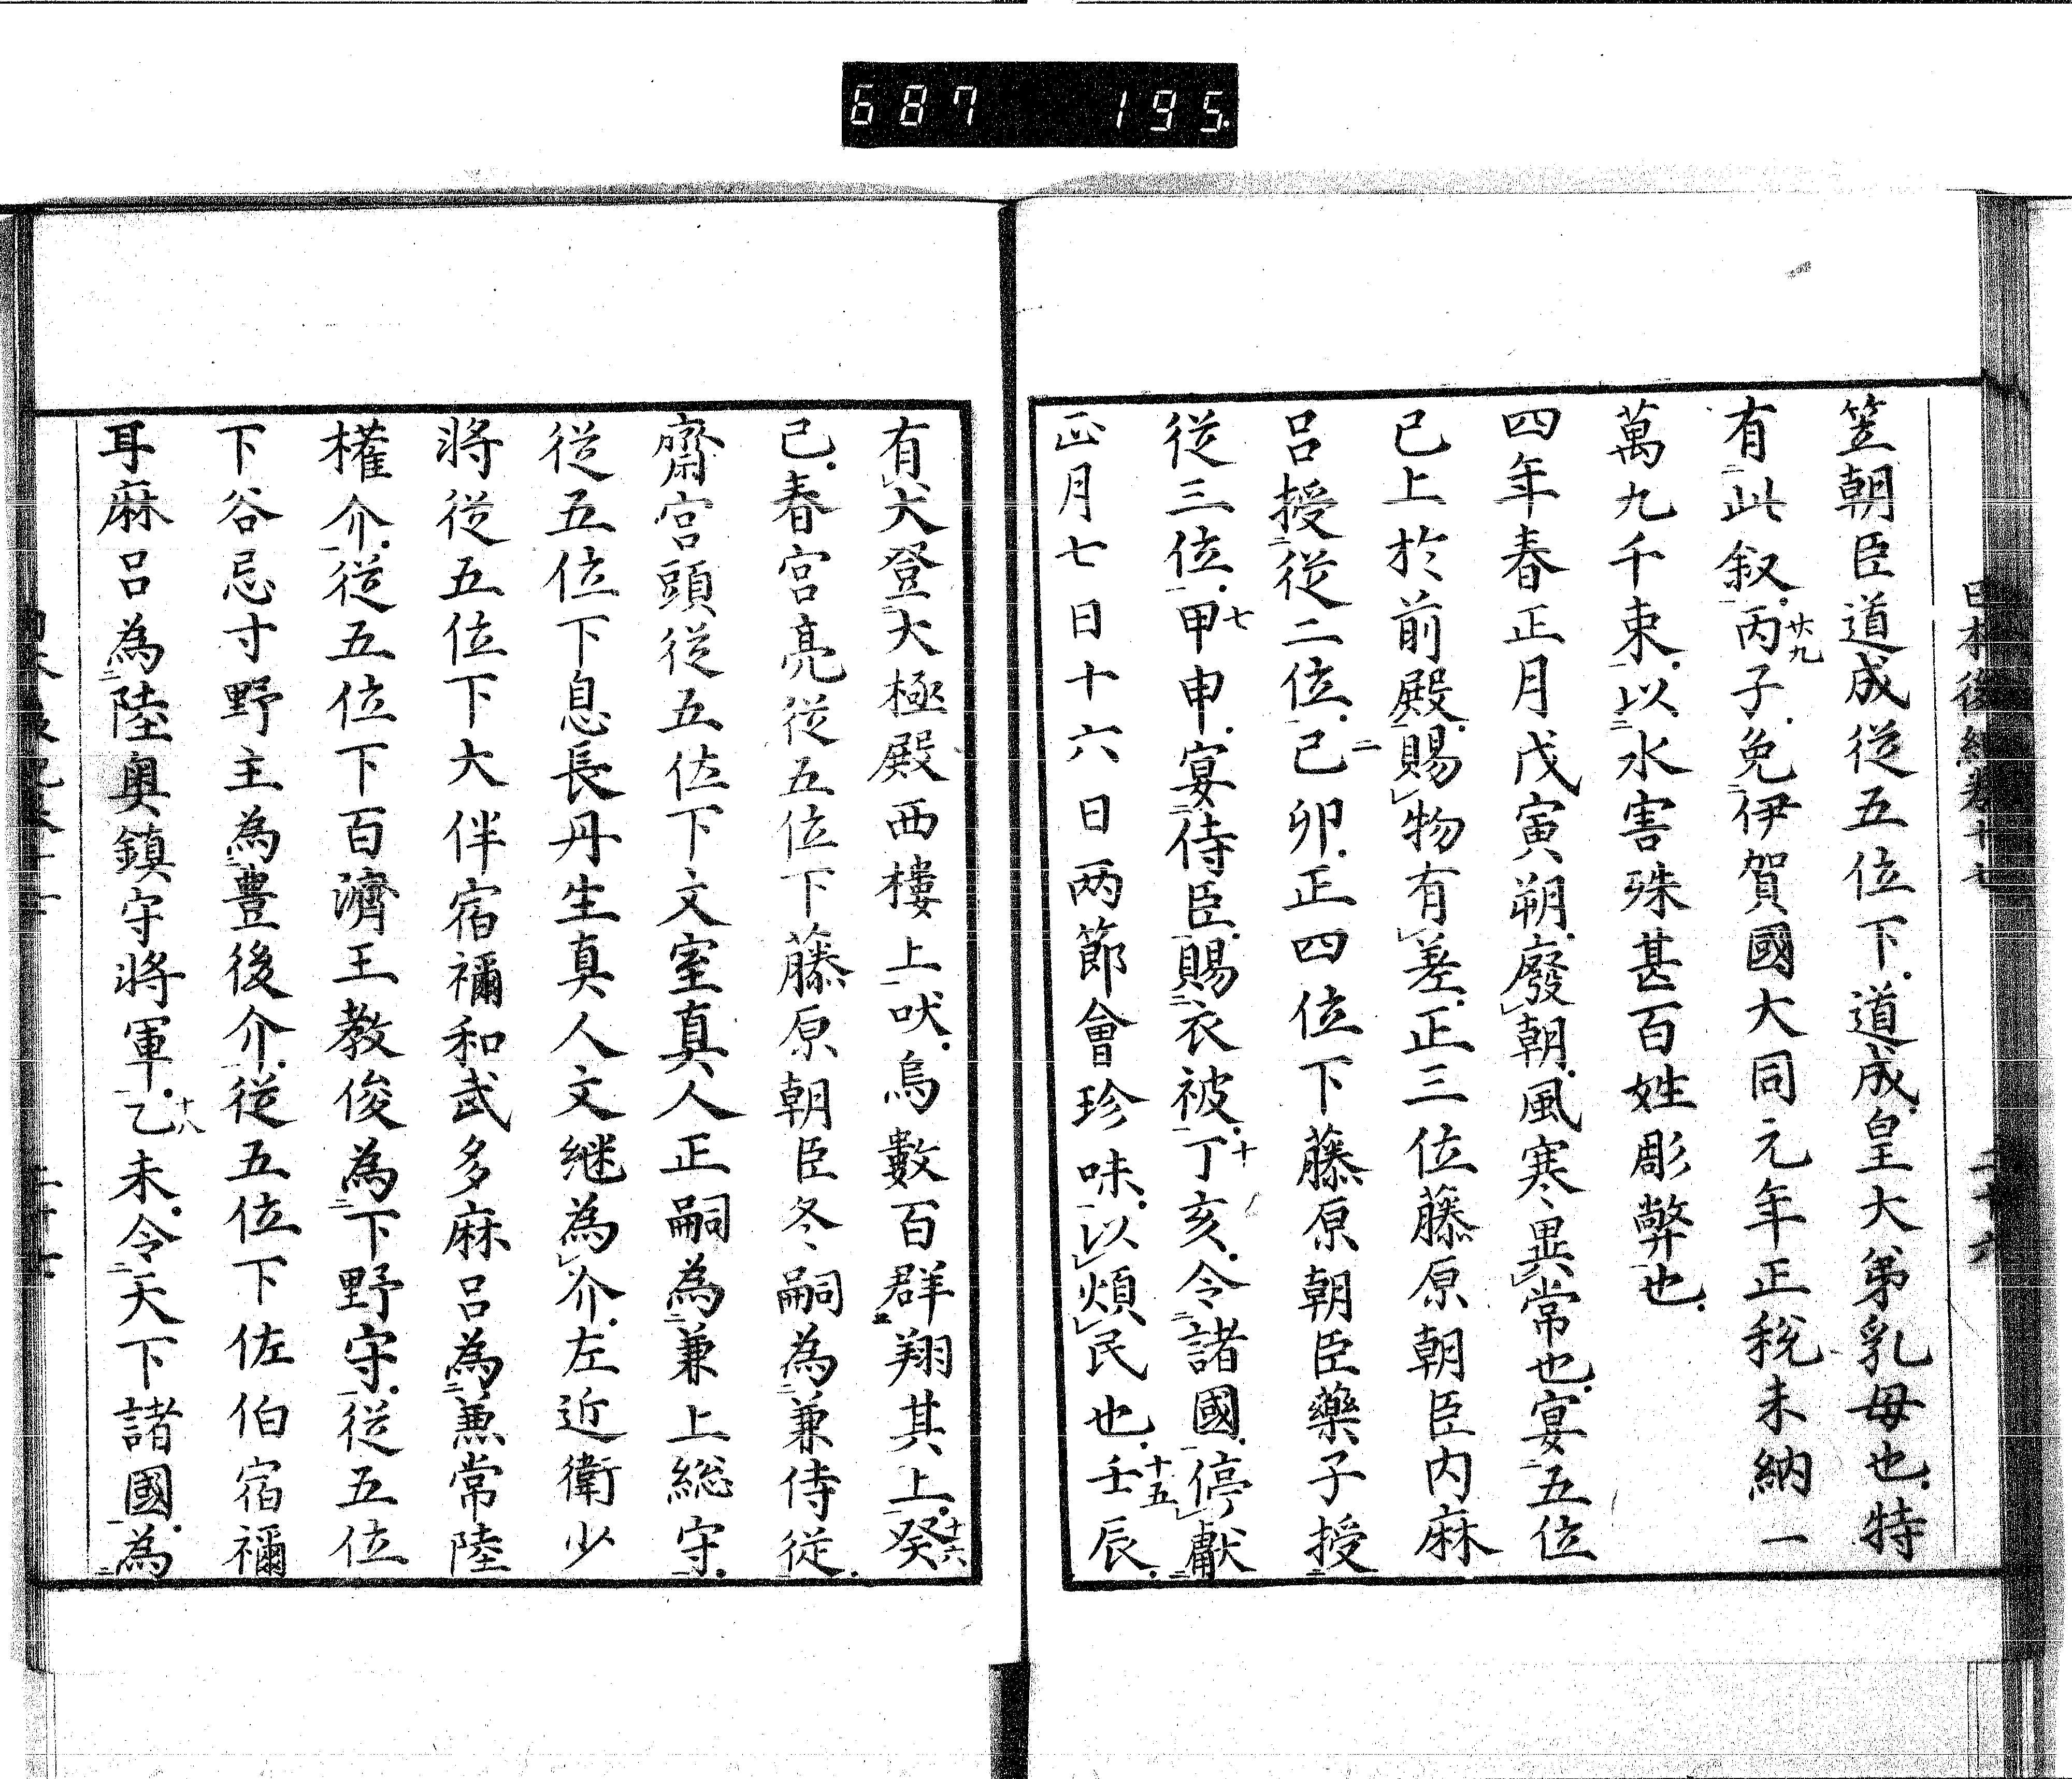 687 195
日本後紀卷十七 二十六
笠朝臣道成従五位下道成皇大弟乳母也特
有此叙丙子免伊賀國大同元年正税未納一
廿九
萬九千束以水害殊甚百姓彫弊也
四年春正月戊寅朔廢朝風寒異常也宴五位
已上於前殿賜物有差正三位藤原朝臣内麻
呂授従二位己卯正四位下藤原朝臣藥子授
二
従三位甲申宴侍臣賜衣被丁亥令諸國停獻
七 十
正月七日十六日两節會珍味以煩民也壬辰
十五
有犬登大極殿西樓上吠烏數百群翔其上癸
十六
已春宮亮従五位下藤原朝臣冬嗣為兼侍従
齋宮頭従五位下文室真人正嗣為兼上総守
従五位下息長丹生真人文継為介左近衛少
将従五位下大伴宿禰和武多麻呂為兼常陸
權介従五位下百濟王教俊為下野守従五位
下谷忌寸野主為豊後介従五位下佐伯宿禰
耳麻呂為陸奥鎮守将軍乙未令天下諸國為
十八